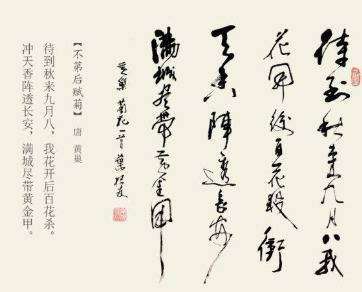 待到秋来九月八我
花開後百花殺衝
天香陣透長安
滿城盡帶黄金甲
黄巢 菊花一首
【不第后赋菊】 唐 黄巢
待到秋来九月八，我花开后百花杀。
冲天香阵透长安；满城尽带黄金甲。